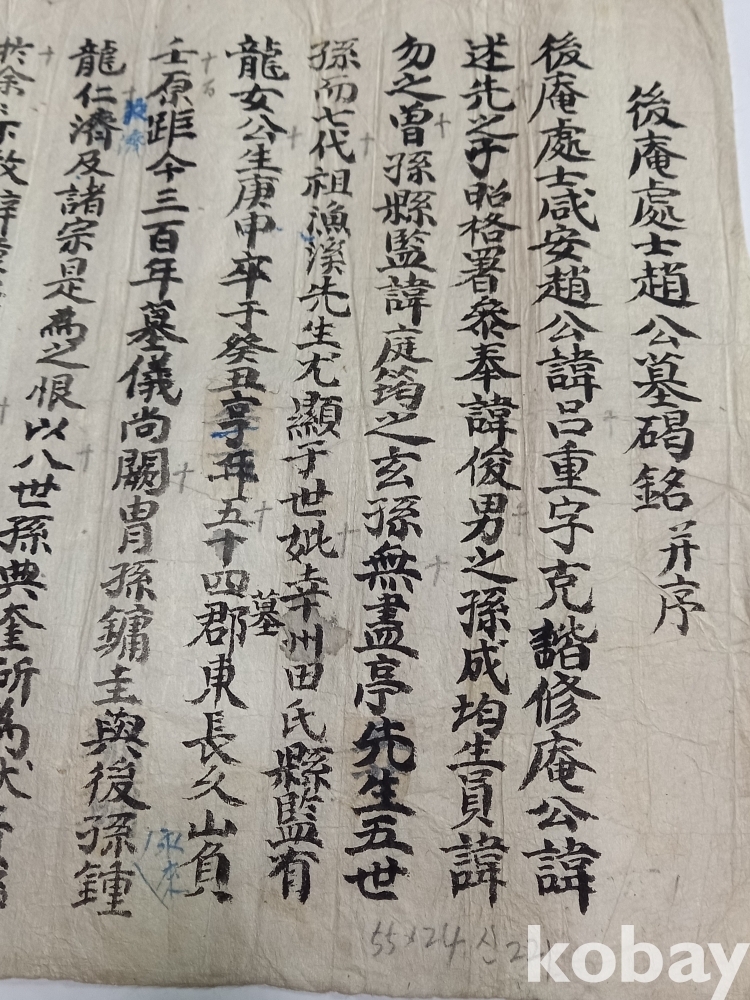 後庵處士趙公墓碣銘 并序
後庵處士咸安趙公諱呂重字克諧修庵公諱
述先之子昭格署參奉諱俊男之孫成均生員諱
勿之曾孫縣監諱庭筠之玄孫無盡亭先生五世
孫而七代祖漁溪先生尤顯于世妣幸州田氏縣監有
龍女公生庚申卒于癸丑享年五十四墓郡東長久山負
壬原距今三百年墓儀尚闕胄孫鏞圭與後孫鍾
龍仁濟及諸宗是為之恨以八世孫典奎所為狀
於余
55×24.신22
kobay